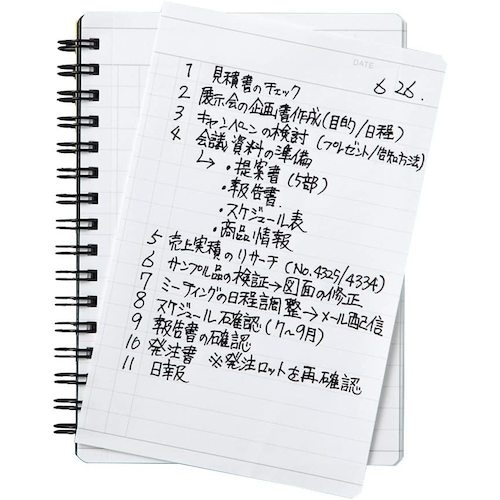 DATE
6 26.
1 見積書のチェック
2 展示会の企画書作成(目的/日程)
3 キャンペーンの検討(プレゼント/告知方法)
4 会議資料の準備
↳・提案書(5部)
・報告書.
・スケジュール表
・商品情報
5 売上実積のリサーチ(No.4325/4334)
6 サンプル品の検証→図面の修正
7 ミーティングの日程調整→メール配信
8 スケジュール確認(7〜9月)
9 報告書の確認
10 発注書 ※発注ロットを再確認
11 日報